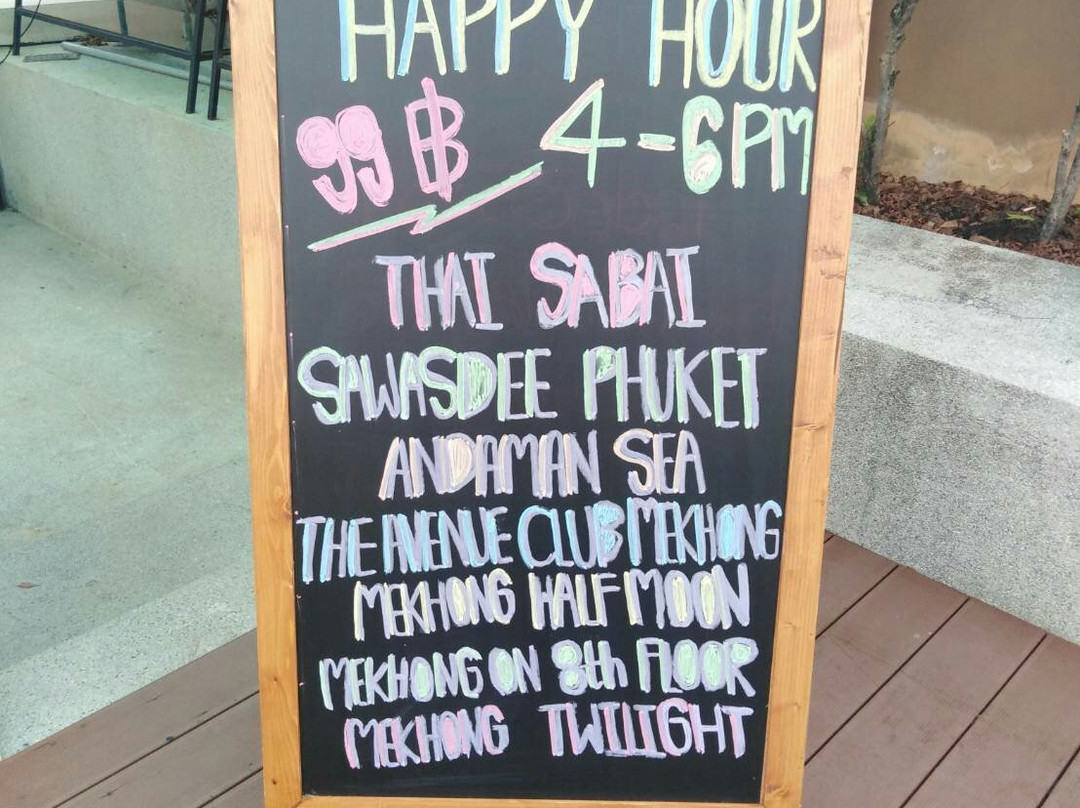 HAPPY HOUR
99 ฿ 4-6PM
THAI SABAI
SAWASDEE PHUKET
ANDAMAN SEA
THE AVENUE CLUB MEKHONG
MEKHONG HALF MOON
MEKHONG ON 8th FLOOR
MEKHONG TWILIGHT